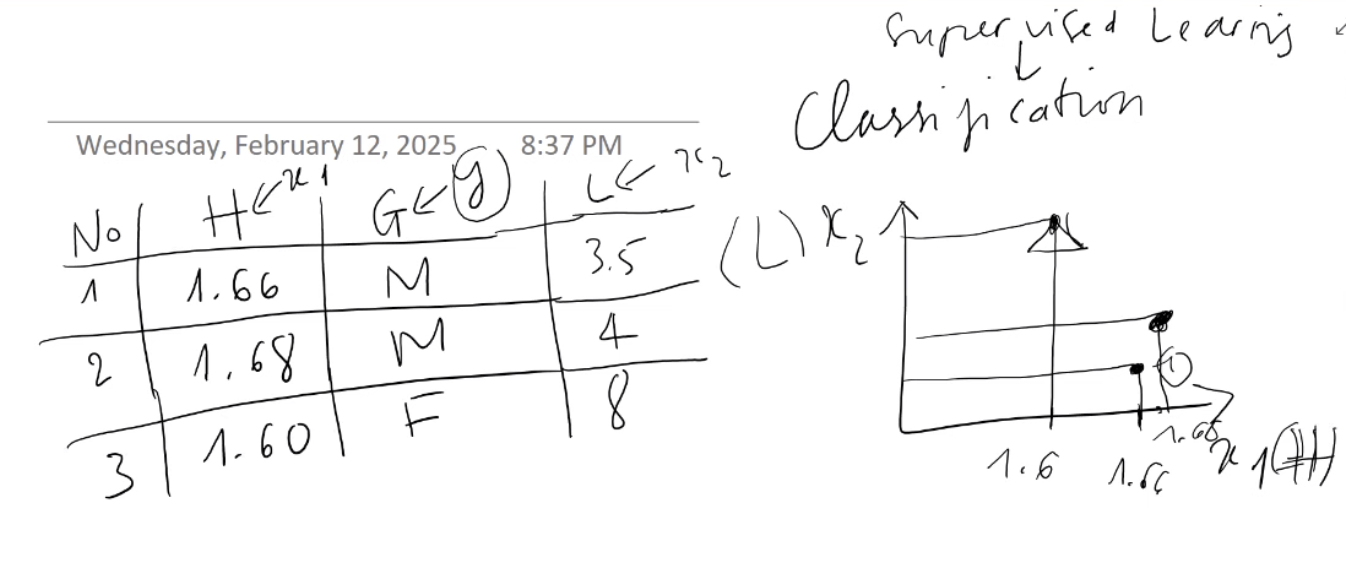 Supervised Learing
Classification
Wednesday, February 12, 2025 8:37 PM
No H ← x1 G ← y L ← x2
1 1.66 M 3.5
2 1.68 M 4
3 1.60 F 8
(L) x2
1.6 1.66 1.68 x1 (H)